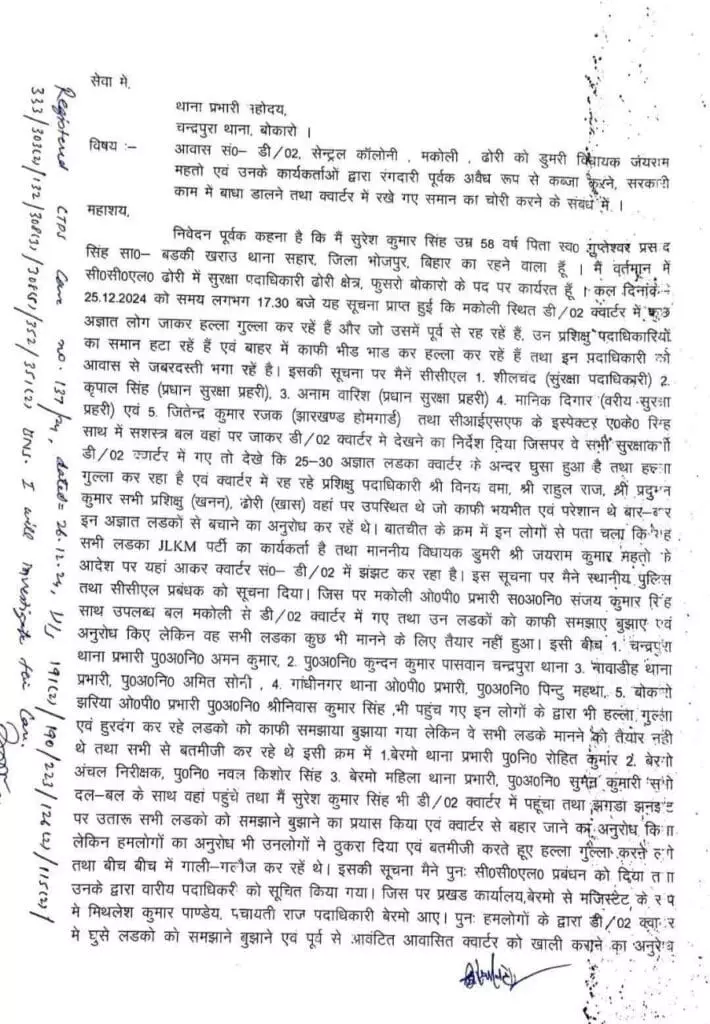 सेवा में,
थाना प्रभारी महोदय,
चन्द्रपुरा थाना, बोकारो ।
विषय :- आवास सं0- डी/02, सेन्ट्रल कॉलोनी , मकोली , ढोरी को डुमरी विधायक जयराम
महतो एवं उनके कार्यकर्ताओं द्वारा रंगदारी पूर्वक अवैध रूप से कब्जा करने, सरकारी
काम में बाधा डालने तथा क्वार्टर में रखे गए समान का चोरी करने के संबंध में ।
महाशय,
निवेदन पूर्वक कहना है कि मैं सुरेश कुमार सिंह उम्र 58 वर्ष पिता स्व0 गुप्तेश्वर प्रसाद
सिंह सा0- बडकी खराउ थाना सहार, जिला भोजपुर, बिहार का रहने वाला हूँ । मैं वर्तमान में
सी0सी0एल0 ढोरी में सुरक्षा पदाधिकारी ढोरी क्षेत्र, फुसरो बोकारो के पद पर कार्यरत हूँ । कल दिनांक-
25.12.2024 को समय लगभग 17.30 बजे यह सूचना प्राप्त हुई कि मकोली स्थित डी/02 क्वार्टर में कुछ
अज्ञात लोग जाकर हल्ला गुल्ला कर रहें हैं और जो उसमें पूर्व से रह रहें हैं, उन प्रशिक्षु पदाधिकारियों
का समान हटा रहें हैं एवं बाहर में काफी भीड भाड कर हल्ला कर रहें हैं तथा इन पदाधिकारी को
आवास से जबरदस्ती भगा रहें है। इसकी सूचना पर मैनें सीसीएल 1. शीलचंद (सुरक्षा पदाधिकारी) 2.
कृपाल सिंह (प्रधान सुरक्षा प्रहरी), 3. अनाम वारिश (प्रधान सुरक्षा प्रहरी) 4. मानिक दिगार (वरीय सुरक्षा
प्रहरी) एवं 5. जितेन्द्र कुमार रजक (झारखण्ड होमगार्ड) तथा सीआईएसएफ के इंस्पेक्टर ए0के0 सिंह
साथ में सशस्त्र बल वहां पर जाकर डी/02 क्वार्टर मे देखने का निर्देश दिया जिसपर वे सभी सुरक्षाकर्मी
डी/02 क्वार्टर में गए तो देखे कि 25-30 अज्ञात लडका क्वार्टर के अन्दर घुसा हुआ है तथा हल्ला
गुल्ला कर रहा है एवं क्वार्टर में रह रहे प्रशिक्षु पदाधिकारी श्री विनय वर्मा, श्री राहुल राज, श्री प्रदुमन
कुमार सभी प्रशिक्षु (खनन), ढोरी (खास) वहां पर उपस्थित थे जो काफी भयभीत एवं परेशान थे बार-बार
इन अज्ञात लडकों से बचाने का अनुरोध कर रहें थे। बातचीत के क्रम में इन लोगों से पता चला कि यह
सभी लडका JLKM पर्टी का कार्यकर्ता है तथा माननीय विधायक डुमरी श्री जयराम कुमार महतो के
आदेश पर यहां आकर क्वार्टर सं0- डी/02 में झंझट कर रहा है। इस सूचना पर मैने स्थानीय पुलिस
तथा सीसीएल प्रबंधक को सूचना दिया। जिस पर मकोली ओ0पी0 प्रभारी स0अ0नि0 संजय कुमार सिंह
साथ उपलब्ध बल मकोली से डी/02 क्वार्टर में गए तथा उन लडकों को काफी समझाए बुझाए एवं
अनुरोध किए लेकिन वह सभी लडका कुछ भी मानने के लिए तैयार नहीं हुआ। इसी बीच 1. चन्द्रपुरा
थाना प्रभारी पु0अ0नि0 अमन कुमार, 2. पु0अ0नि0 कुन्दन कुमार पासवान चन्द्रपुरा थाना 3. नावाडीह थाना
प्रभारी, पु0अ0नि0 अमित सोनी , 4. गांधीनगर थाना ओ0पी0 प्रभारी, पु0अ0नि0 पिन्टु महथा, 5. बोकारो
झरिया ओ0पी0 प्रभारी पु0अ0नि0 श्रीनिवास कुमार सिंह ,भी पहुंच गए इन लोगों के द्वारा भी हल्ला गुल्ला
एवं हुरदंग कर रहे लडको को काफी समझाया बुझाया गया लेकिन वे सभी लडके मानने को तैयार नही
थे तथा सभी से बतमीजी कर रहे थे इसी क्रम में 1.बेरमो थाना प्रभारी पु0नि0 रोहित कुमार 2. बेरमो
अंचल निरीक्षक, पु0नि0 नवल किशोर सिंह 3. बेरमो महिला थाना प्रभारी, पु0अ0नि0 सुमन कुमारी सभी
दल-बल के साथ वहां पहुंचे तथा मैं सुरेश कुमार सिंह भी डी/02 क्वार्टर में पहूंचा तथा झगडा झनझट
पर उतारू सभी लडकों को समझाने बुझाने का प्रयास किया एवं क्वार्टर से बहार जाने का अनुरोध किया
लेकिन हमलोगों का अनुरोध भी उनलोगों ने ठुकरा दिया एवं बतमीजी करते हूए हल्ला गुल्ला करने लगे
तथा बीच बीच में गाली-गलौज कर रहें थे। इसकी सूचना मैने पुनः सी0सी0एल0 प्रबंधन को दिया तथा
उनके द्वारा वारीय पदाधिकरी को सूचित किया गया। जिस पर प्रखड कार्यालय,बेरमो से मजिस्टेट के रूप
मे मिथलेश कुमार पाण्डेय, पंचायती राज पदाधिकारी बेरमो आए। पुनः हमलोगों के द्वारा डी/02 क्वार्टर
मे घुसे लडको को समझाने बुझाने एवं पूर्व से आवंटित आवासित क्वार्टर को खाली कराने का अनुरोध
Registered CTPS Case no. 137/24, dated= 26.12.24, U/s 191(2)/190/223/126(2)/115(2)/
333/303(2)/132/308(3)/308(5)/352/351(2) BNS. I will investigate this Case.